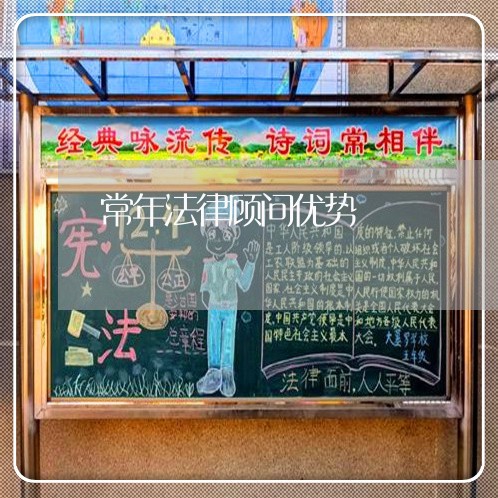 经典咏流传 诗词常相伴
常年法律顾问优势
宪法
12.4
公平
公正
总章程
中华人民共和国
是工人阶级领导的,以
工农联盟为基础的
人民民主专政的社会主义
国家,社会主义制度是中
华人民共和国的根本制
度,中国共产党领导是中
国特色社会主义最本
质的特征,禁止任何
组织或者个人破坏社会
主义制度,中华人民共和
国的一切权利属于人民,
人民行使国家权力的机
关是全国人民代表大会
和地方各级人民代表
大会。
五年级
法律面前,人人平等